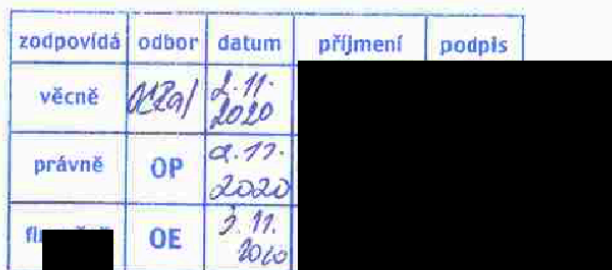 zodpovídá odbor datum příjmení podpis
věcně 2.11.
2020
právně OP 2.11.
2020
OE 3.11.
2020